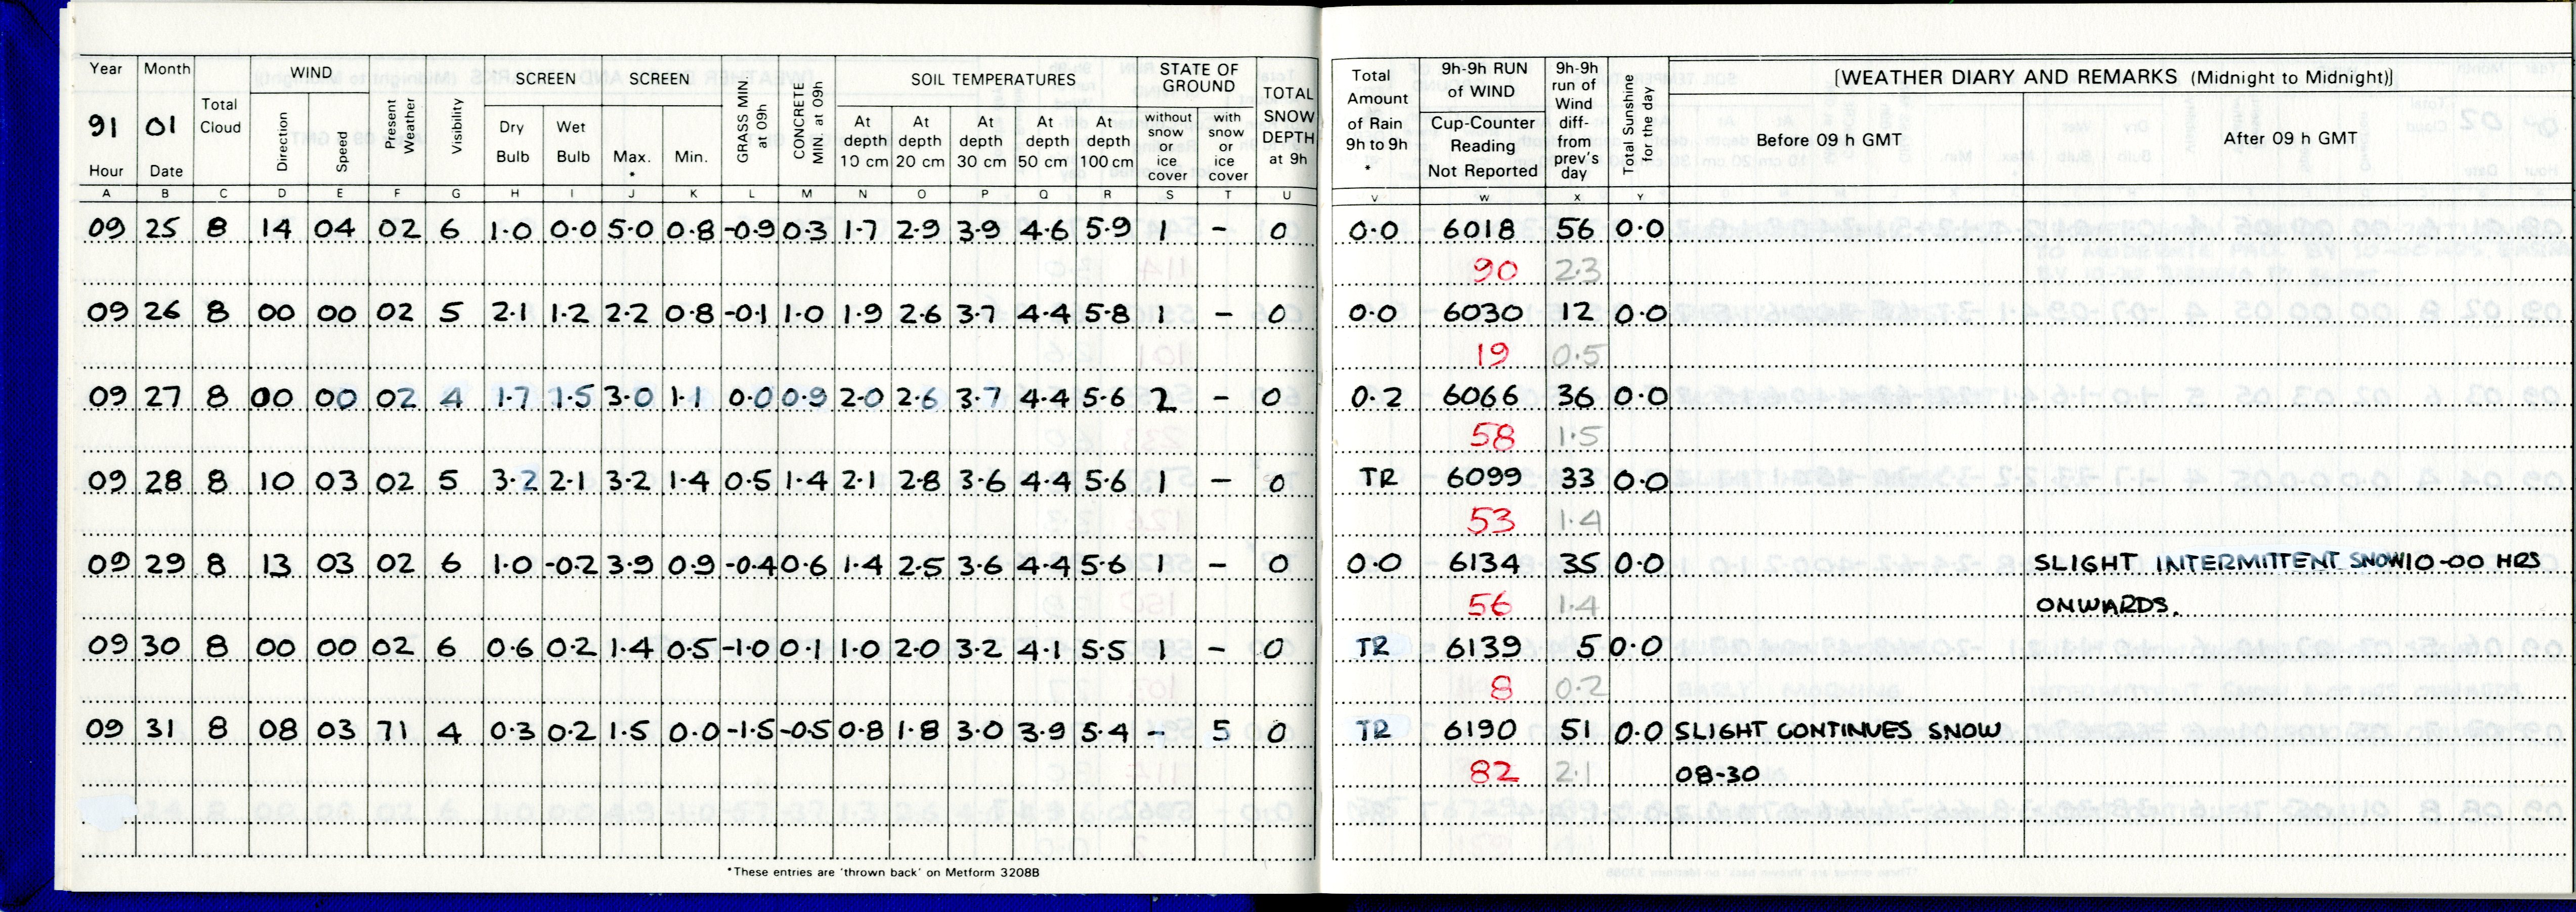 Year Month WIND SCREEN SCREEN SOIL TEMPERATURES STATE OF GROUND
91 01 Total Cloud Direction Speed Present Weather Visibility Dry Bulb Wet Bulb Max. * Min. GRASS MIN at 09h CONCRETE MIN at 09h At depth 10 cm At depth 20 cm At depth 30 cm At depth 50 cm At depth 100 cm without snow or ice cover with snow or ice cover TOTAL SNOW DEPTH at 9h
Hour Date
A B C D E F G H I J K L M N O P Q R S T U
Total Amount of Rain 9h to 9h * 9h-9h RUN of WIND Cup-Counter Reading Not Reported 9h-9h run of Wind diff- from prev's day Total Sunshine for the day [WEATHER DIARY AND REMARKS (Midnight to Midnight)]
Before 09 h GMT After 09 h GMT
V W X Y
09 25 8 14 04 02 6 1.0 0.0 5.0 0.8 -0.9 0.3 1.7 2.9 3.9 4.6 5.9 1 - 0 0.0 6018 56 0.0
90 2.3
09 26 8 00 00 02 5 2.1 1.2 2.2 0.8 -0.1 1.0 1.9 2.6 3.7 4.4 5.8 1 - 0 0.0 6030 12 0.0
19 0.5
09 27 8 00 00 02 4 1.7 1.5 3.0 1.1 0.0 0.9 2.0 2.6 3.7 4.4 5.6 2 - 0 0.2 6066 36 0.0
58 1.5
09 28 8 10 03 02 5 3.2 2.1 3.2 1.4 0.5 1.4 2.1 2.8 3.6 4.4 5.6 1 - 0 TR 6099 33 0.0
53 1.4
09 29 8 13 03 02 6 1.0 -0.2 3.9 0.9 -0.4 0.6 1.4 2.5 3.6 4.4 5.6 1 - 0 0.0 6134 35 0.0 SLIGHT INTERMITTENT SNOW 10-00 HRS
56 1.4 ONWARDS.
09 30 8 00 00 02 6 0.6 0.2 1.4 0.5 -1.0 0.1 1.0 2.0 3.2 4.1 5.5 1 - 0 TR 6139 5 0.0
8 0.2
09 31 8 08 03 71 4 0.3 0.2 1.5 0.0 -1.5 -0.5 0.8 1.8 3.0 3.9 5.4 - 5 0 TR 6190 51 0.0 SLIGHT CONTINUES SNOW
82 2.1 08-30
*These entries are 'thrown back' on Metform 3208B